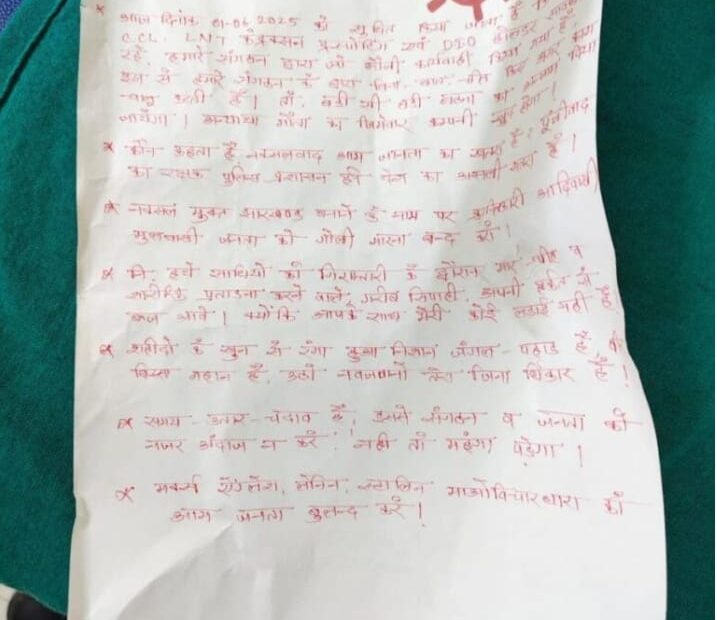 * आज दिनांक 01-06-2025 को सूचित किया जाता है कि
C.C.L. L.N.T कंट्रक्सन ट्रांसपोर्टिंग एवं D३O होलडर
रहें, हमारे संगठन द्वारा जो भी कार्यवाही किया गया है,
हमारे संगठन के द्वारा बिना
चालु करती है। तो, बड़ी सी बड़ी घटना का अन्जाम दिया
जायेगा। अन्यथा मौत का जिमेवार कम्पनी खुद होगा!
* कौन कहता है नक्सलवाद आम जनता का खतरा है? पूँजीवाद
का रक्षक पुलिस प्रशासन इस देश का असली खतरा है।
* नक्सल मुक्त झारखण्ड बनाने के नाम पर क्रान्तिकारी आदिवासी
मुलवासी जनता को गोली मारना बन्द करो!
* साथियों को गिरफ्तारी के दौरान मार-पीट व
शारीरिक प्रताडना करने वाले, गरीब सिपाही, अपनी हर्कत से
बाज आवे। क्योंकि आपके साथ मेरी कोई लड़ाई नहीं है!
* शहीदों के खुन से रंगा हुआ निशान जंगल-पहाड़ है, वो
हिस्सा महान है, उठो नवजवानों तेरा जिना धिकार है!
* समय-उतार-चढाव है, इसमे संगठन व जनता को
नजर अंदाज न करे! नही तो महंगा पड़ेगा।
* मार्क्स एंगेल्स, लेनिन, स्तालिन माओविचारधारा को
आम जनता बुलन्द करे!